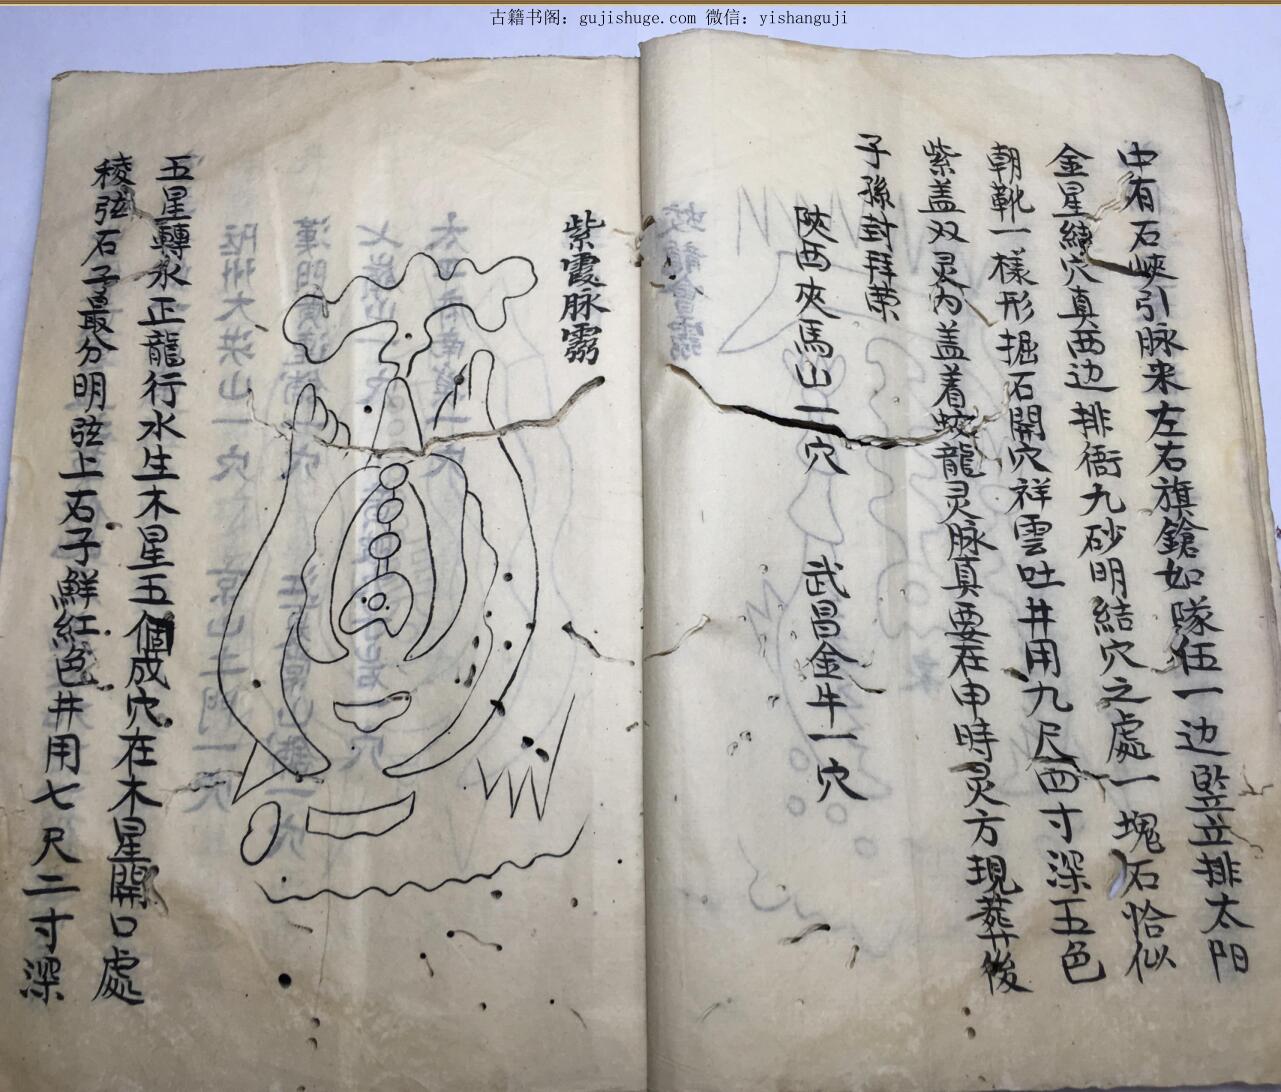 古籍书阁：gujishuge.com 微信：yishanguji
中有石峽引脉来左右旗鎗如隊伍一边竪立排太阳
金星結穴真两边排衙九砂明結穴之處一塊石恰似
朝靴一樣形掘石開穴祥雲吐井用九尺四寸深五色
紫盖双灵内盖着蛟龍灵脉真要在申時灵方現葬後
子孫封拜荣
陕西夾馬山一穴 武昌金牛一穴
紫霞脉
五星轉水正龍行水生木星五個成穴在木星開口處
稜弦石子最分明弦上石子鮮紅色井用七尺二寸深